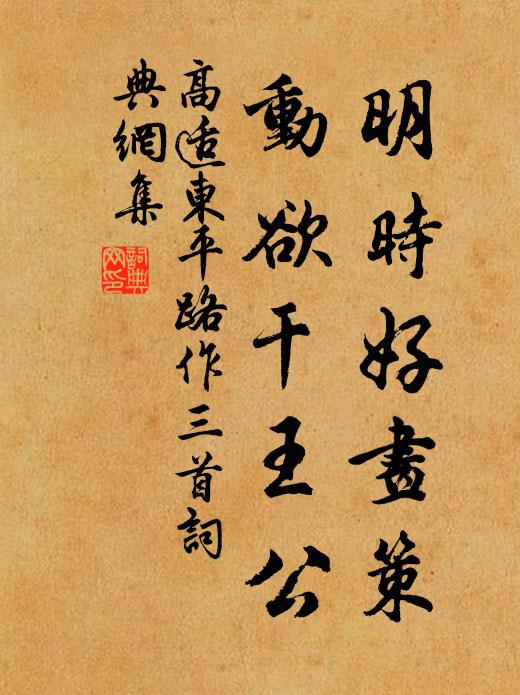 明時好畫策
動欲干王公
高适東平路作三首詞
典網集
詞典网印